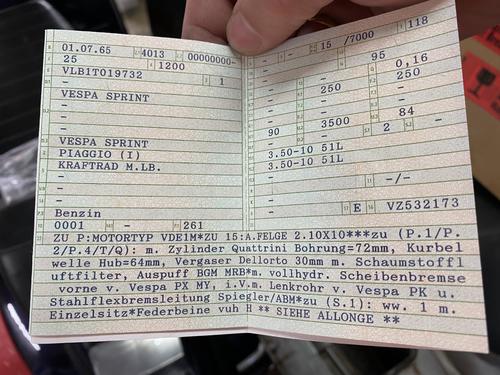 01.07.65 4013 00000000-
25 1200
VLB1T019732 1
-
VESPA SPRINT
-
-
VESPA SPRINT
PIAGGIO (I)
KRAFTRAD M.LB.
-
-
-
Benzin
0001 - 261
- - 15 /7000 118
- 95 0,16
- 250 250
-
- 84
90 3500 2 -
3.50-10 51L
3.50-10 51L
-
- -/-
E VZ532173
ZU P:MOTORTYP VDE1M*ZU 15:A.FELGE 2.10X10***zu (P.1/P.
2/P.4/T/Q): m. Zylinder Quattrini Bohrung=72mm, Kurbel
welle Hub=64mm, Vergaser Dellorto 30mm m. Schaumstoffl
uftfilter, Auspuff BGM MRB*m. vollhydr. Scheibenbremse
vorne v. Vespa PX MY, i.V.m. Lenkrohr v. Vespa PK u.
Stahlflexbremsleitung Spiegler/ABM*zu (S.1): ww. 1 m.
Einzelsitz*Federbeine vuh H ** SIEHE ALLONGE **